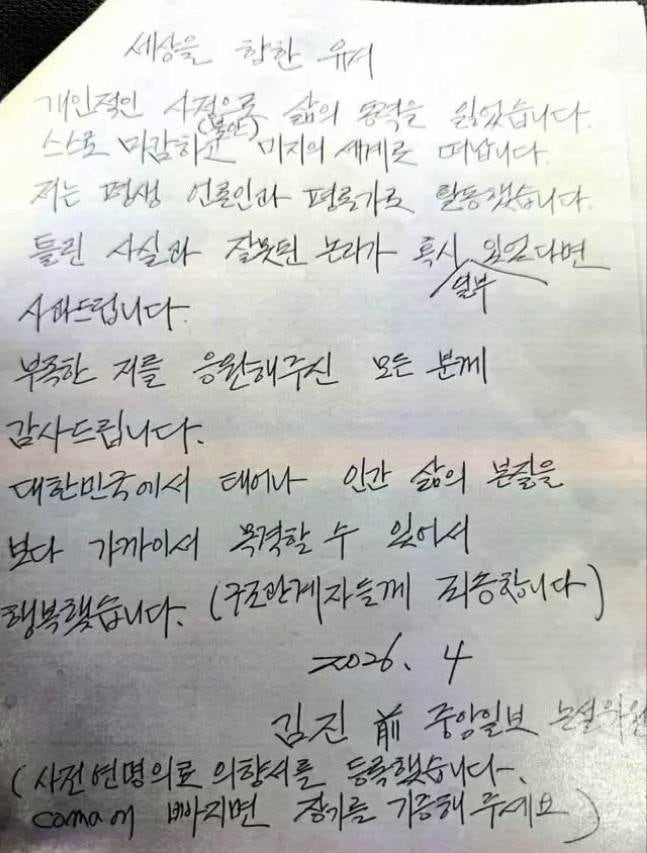 세상을 향한 유서
개인적인 사정으로 삶의 동력을 잃었습니다.
스스로 마감하고 미지의 세계로 떠납니다.
저는 평생 언론인과 평론가로 활동했습니다.
틀린 사실과 잘못된 논리가 혹시 일부 있었다면
사과드립니다.
부족한 저를 응원해주신 모든 분께
감사드립니다.
대한민국에서 태어나 인간 삶의 본질을
보다 가까이서 목격할 수 있어서
행복했습니다. (구조관계자들께 죄송합니다)
2026. 4
김진 前 중앙일보 논설위원
(사전연명의료 의향서를 등록했습니다.
coma에 빠지면 장기를 기증해 주세요)